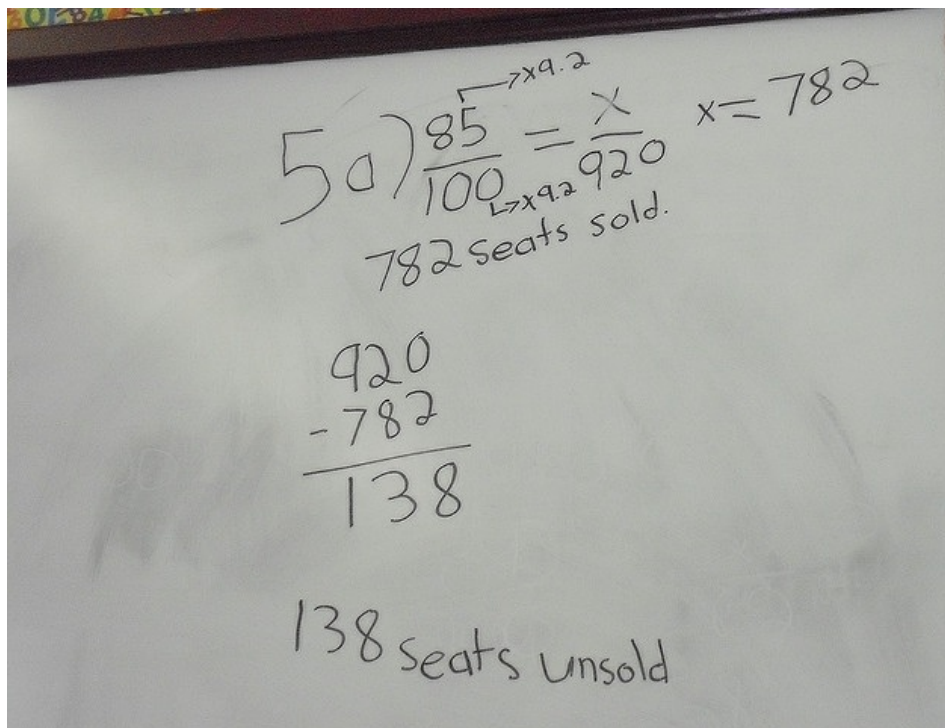 5a) 85/100 = x/920 x = 782
→x9.2
→x9.2
782 seats sold.
920
-782
138
138 seats unsold